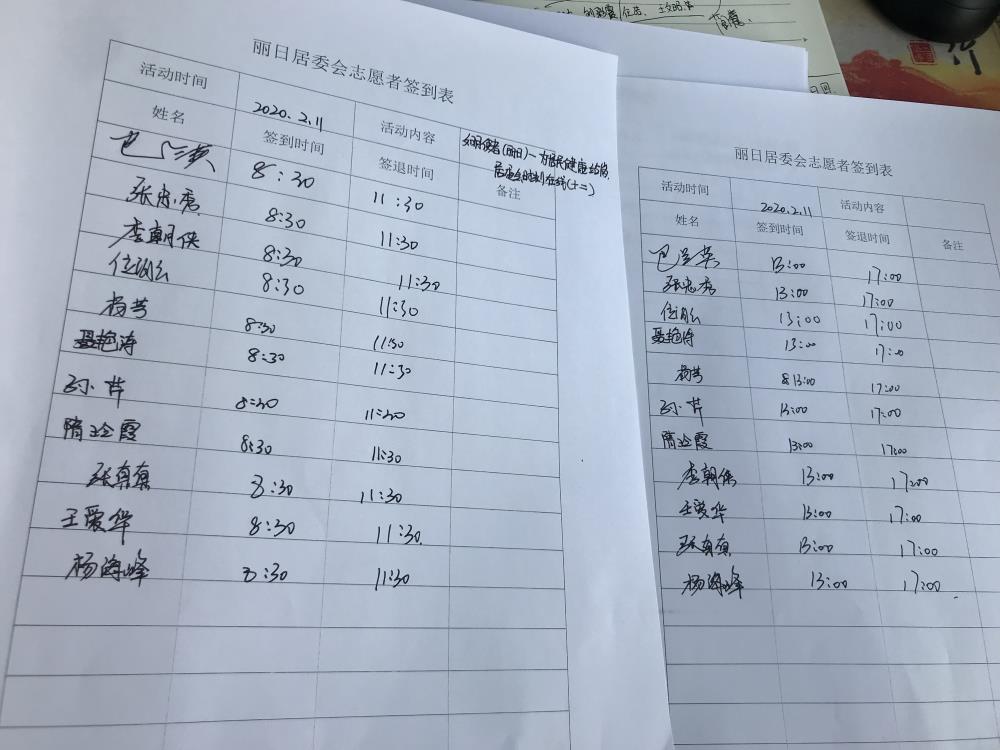 丽日居委会志愿者签到表
活动时间 2020.2.11 活动内容
姓名 签到时间 签退时间 备注
8:30 11:30
张忠秀 8:30 11:30
李朝侠 8:30 11:30
8:30 11:30
杨芳 8:30 11:30
聂艳涛 8:30 11:30
孙芹 8:30 11:30
隋玲霞 8:30 11:30
张真真 8:30 11:30
王爱华 8:30 11:30
杨海峰 8:30 11:30
丽日居委会志愿者签到表
活动时间 2020.2.11 活动内容
姓名 签到时间 签退时间 备注
13:00 17:00
张忠秀 13:00 17:00
13:00 17:00
聂艳涛 13:00 17:00
杨芳 13:00 17:00
孙芹 13:00 17:00
隋玲霞 13:00 17:00
李朝侠 13:00 17:00
王爱华 13:00 17:00
张真真 13:00 17:00
杨海峰 13:00 17:00